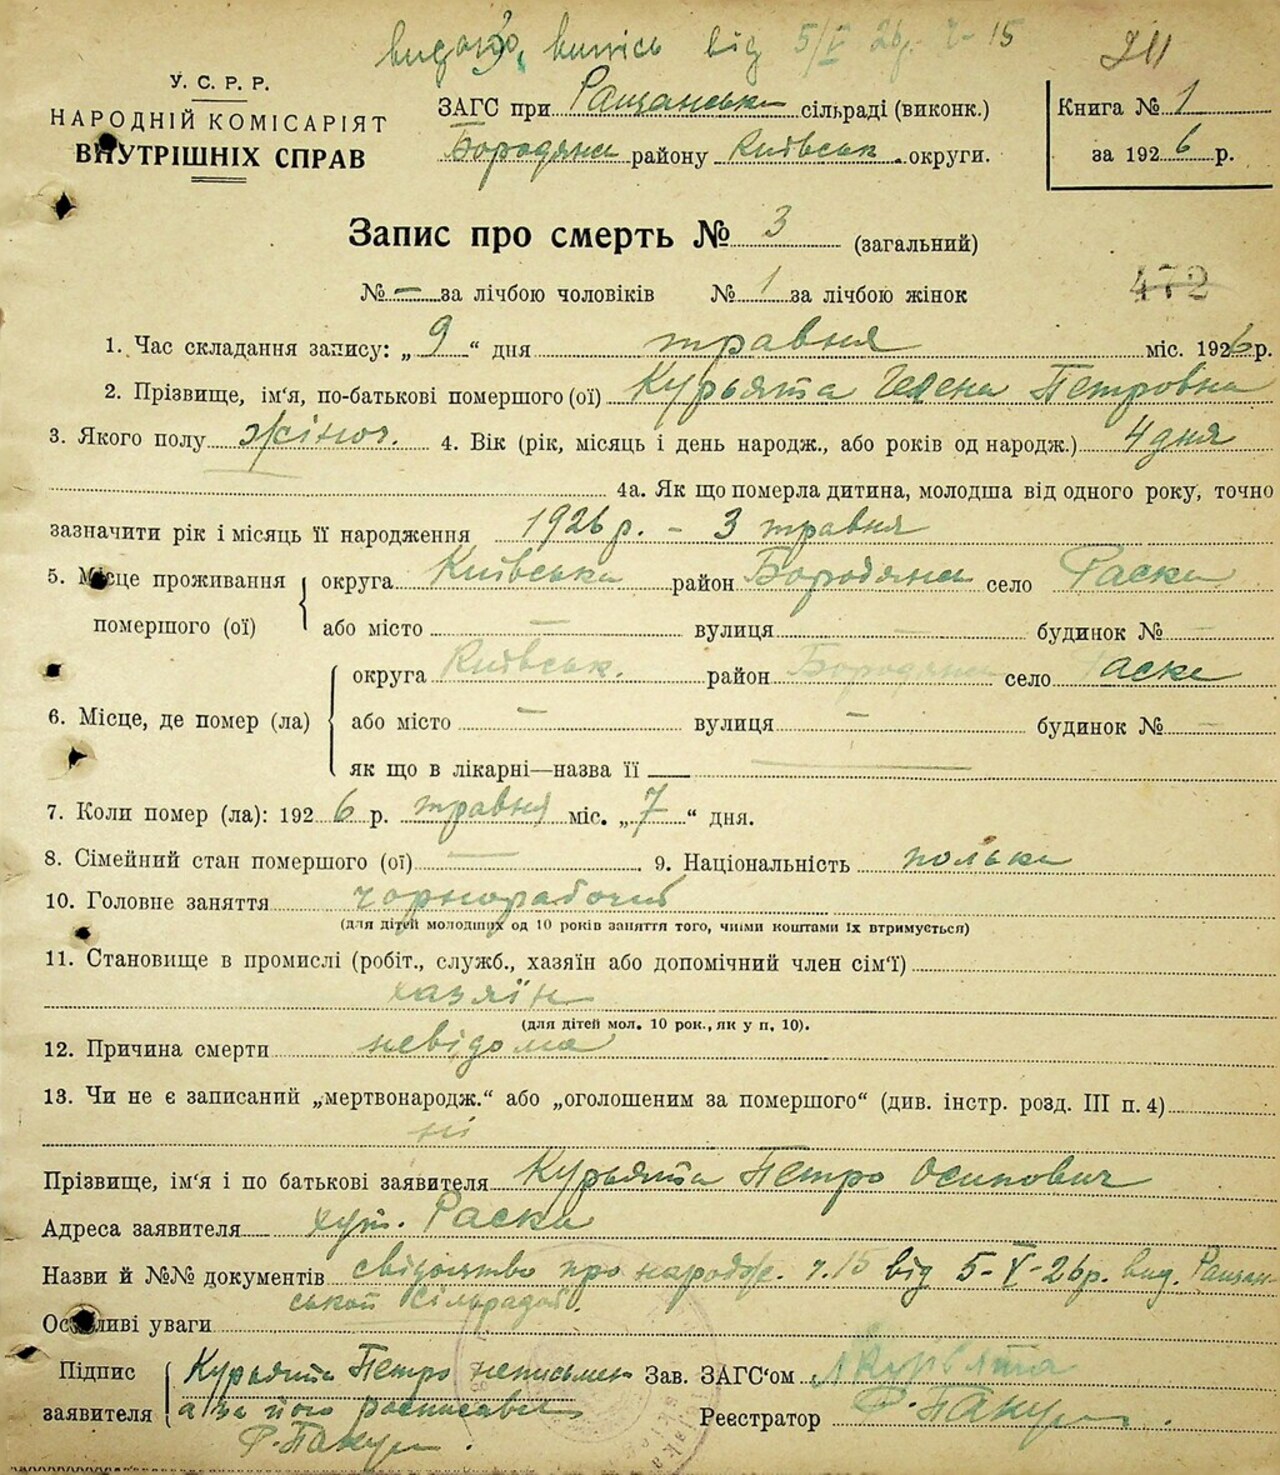 видано випись від 5/V 26р. ч-15
У. С. Р. Р.
НАРОДНІЙ КОМІСАРІЯТ
ВНУТРІШНІХ СПРАВ
ЗАГС при Ращанськи сільраді (виконк.)
Бородянс району Київськ. округи.
Книга № 1
за 1926 р.
Запис про смерть № 3 (загальний)
№ — за лічбою чоловіків № 1 за лічбою жінок
472
1. Час складання запису: „9“ дня травня міс. 1926 р.
2. Прізвище, ім'я, по-батькові помершого (ої) Курьята Гелена Петровна
3. Якого полу жіноч. 4. Вік (рік, місяць і день народж., або років од народж.) 4 дня
4а. Як що померла дитина, молодша від одного року, точно
зазначити рік і місяць її народження 1926 р. - 3 травня
5. Місце проживання округа Київська район Бородянс село Раска
помершого (ої) або місто — вулиця — будинок № —
округа Київськ. район Бородянс село Раска
6. Місце, де помер (ла) або місто — вулиця — будинок № —
як що в лікарні—назва її —
7. Коли помер (ла): 1926 р. травня міс. „7“ дня.
8. Сімейний стан помершого (ої) — 9. Національність полька
10. Головне заняття чорнорабочий
(для дітей молодших од 10 років заняття того, чиїми коштами їх втримується)
11. Становище в промислі (робіт., служб., хазяїн або допомічний член сім'ї)
хазяїн
(для дітей мол. 10 рок., як у п. 10).
12. Причина смерти невідома
13. Чи не є записаний „мертвонародж.“ або „оголошеним за помершого“ (див. інстр. розд. III п. 4)
ні
Прізвище, ім'я і по батькові заявителя Курьята Петро Осипович
Адреса заявителя хут. Раска
Назви й №№ документів свідоцтво про народж. ч. 15 від 5-V-26р. вид. Ращан-
ської Сільрадой.
Особливі уваги
Підпис Курьята Петро неписьмен Зав. ЗАГС'ом Курьята
заявителя а за його росписався Реєстратор Ф. Пакул
Ф. Пакул